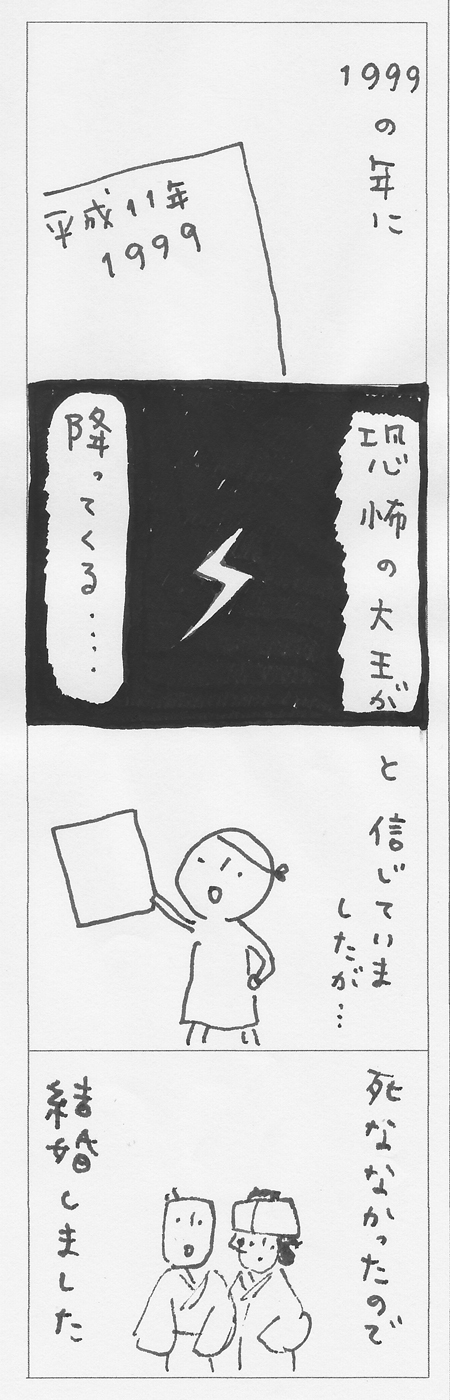 1999
の年に
平成11年
1999
恐怖の大王が
降ってくる・・・・
と信じていま
したが…
死ななかったので
結婚しました